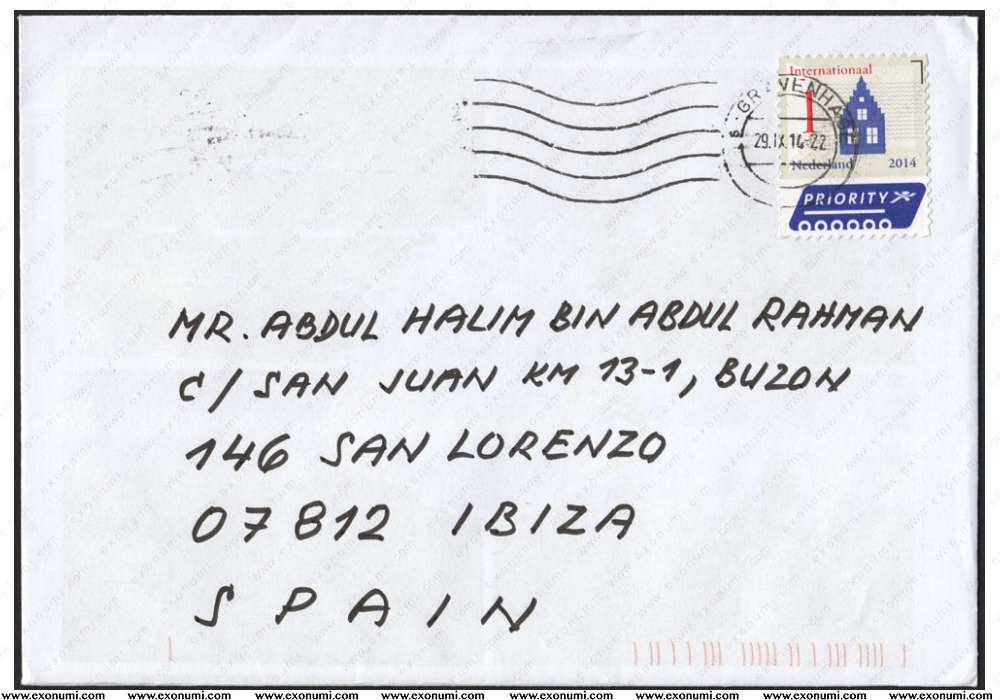 Internationaal
1
Nederland 2014
PRIORITY
29.IX.14-22
MR. ABDUL HALIM BIN ABDUL RAHMAN
C/ SAN JUAN KM 13-1, BUZON
146 SAN LORENZO
07812 IBIZA
SPAIN
www.exonumi.com www.exonumi.com www.exonumi.com www.exonumi.com www.exonumi.com www.exonumi.com www.exonumi.com www.exonumi.com